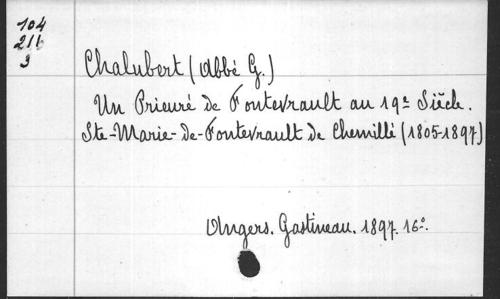 104
211
3
Chalubert (Abbé G.)
Un Prieuré de Fontevrault au 19e Siècle.
Ste-Marie-de-Fontevrault de Chemillé (1805-1897)
Angers. Gastineau. 1897. 16°.